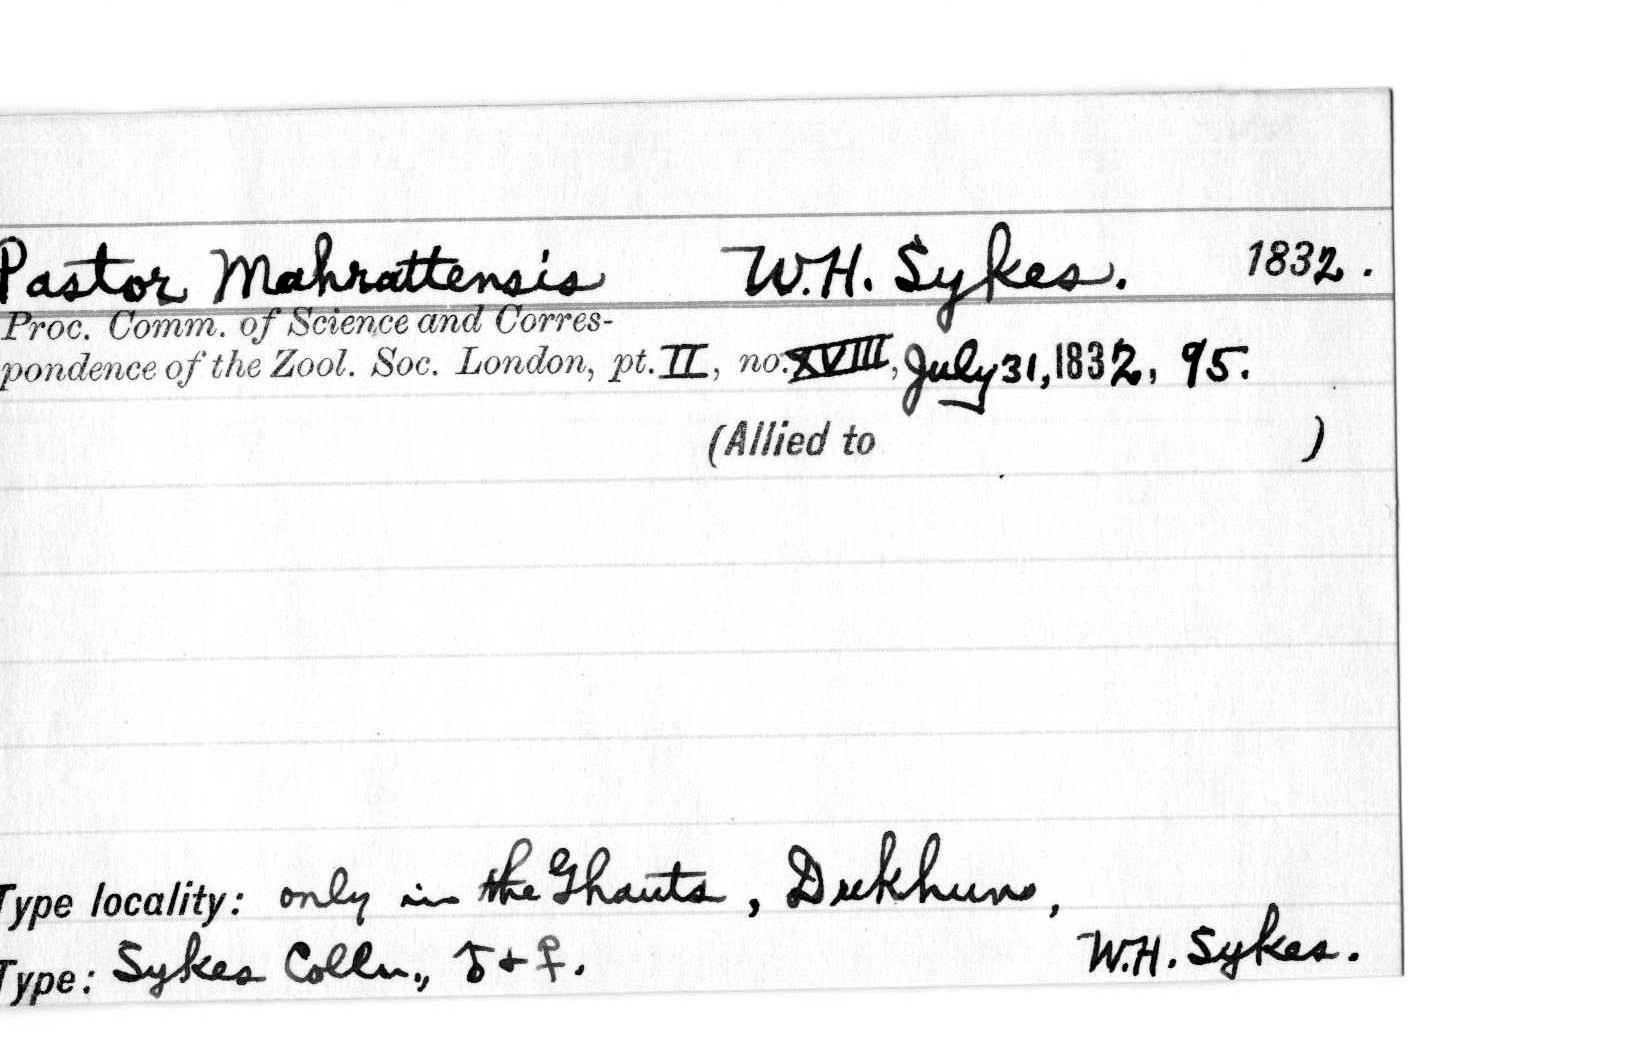 Pastor Mahrattensis W.H. Sykes. 1832.
Proc. Comm. of Science and Corres-
pondence of the Zool. Soc. London, pt. II, no. XVIII, July 31, 1832, 95.
(Allied to )
Type locality: only in the Ghauts, Dukhun,
W.H. Sykes.
Type: Sykes Colln., ♂ + ♀.